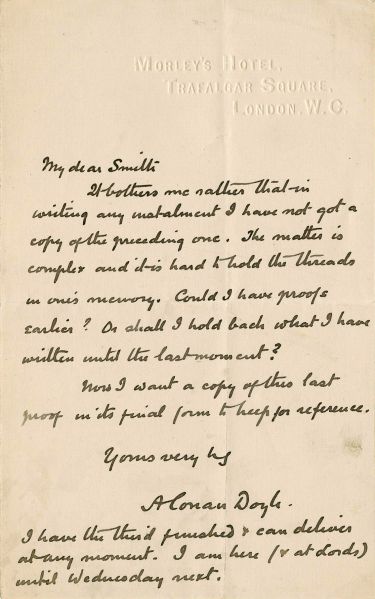 MORLEY'S HOTEL,
TRAFALGAR SQUARE,
LONDON. W.C.
My dear Smith
It bothers me rather that in
writing any instalment I have not got a
copy of the preceding one. The matter is
complex and it is hard to hold the threads
in one's memory. Could I have proofs
earlier? Or shall I hold back what I have
written until the last moment?
Now I want a copy of this last
proof in its final form to keep for reference.
Yours very
A Conan Doyle.
I have the third finished & can deliver
at any moment. I am here (& at Lords)
until Wednesday next.